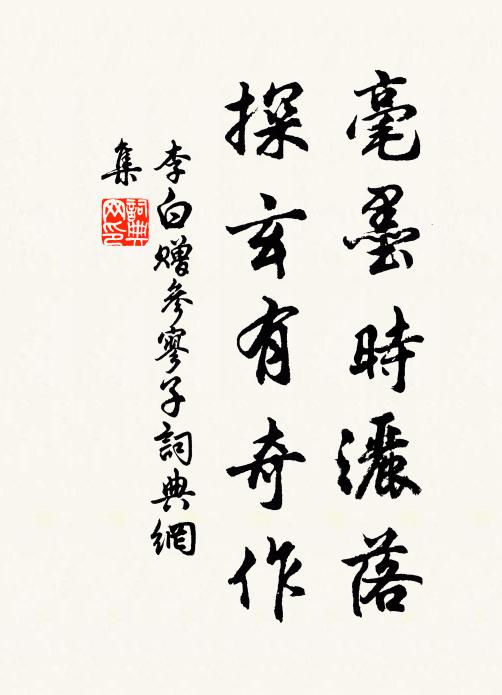 毫墨時灑落
探玄有奇作
李白贈參寥子詞典網
集
詞典網印